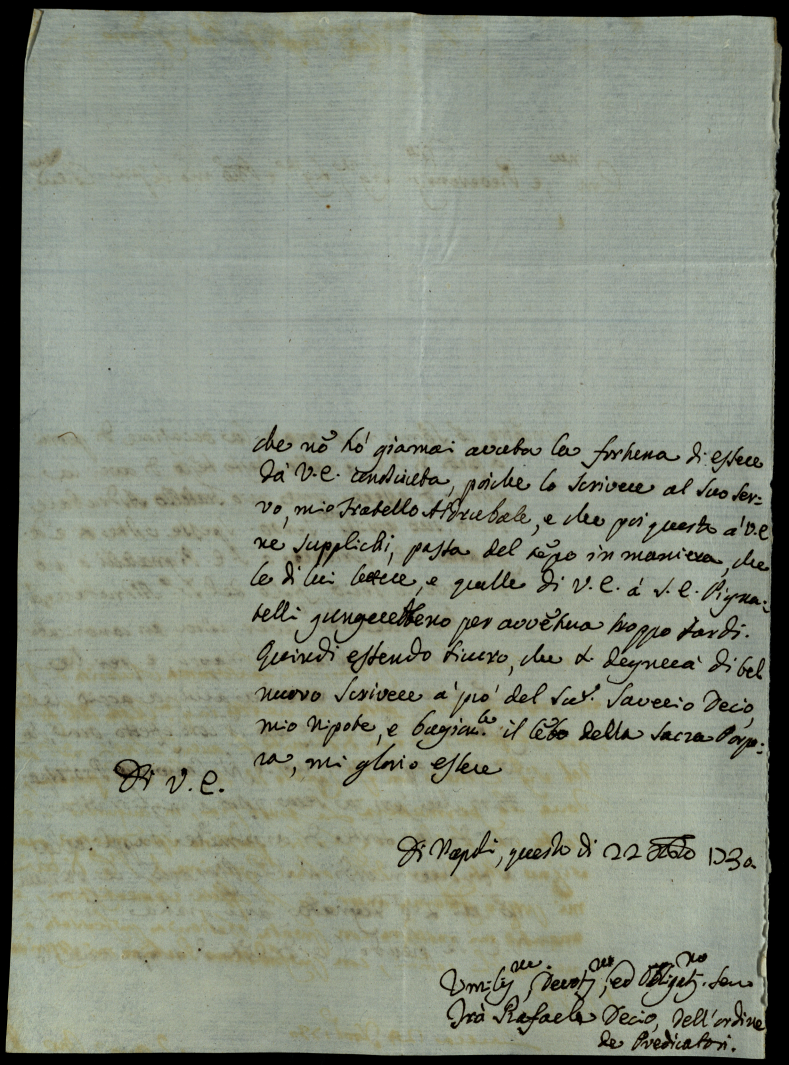 che nõ hó giamai avuta la fortuna di essere
dà V.E. conosciuta, poiche lo scrivere al suo ser-
vo, mio fratello Asdrubale, e che poi questo à V.E.
ne supplichi, passa del tẽpo in maniera, che
le di lui lettere, e quelle di V.E. à S.E. Pigna-
telli giungerebbeno per avvẽtura troppo tardi.
Quindi essendo sicuro, che si degnerà di bel
nuovo scrivere à prò del Saverio Decio
mio Nipote, e bagiandole il lẽbo della Sacra Porpo-
ra, mi glorio essere
Di V.E.
Di Napoli, questo dì 22 1730
Umiliss.mo, Devotis.mo, ed Obligatis.mo Serv
Frà Rafaele Decio, dell'ordine
de Predicatori.